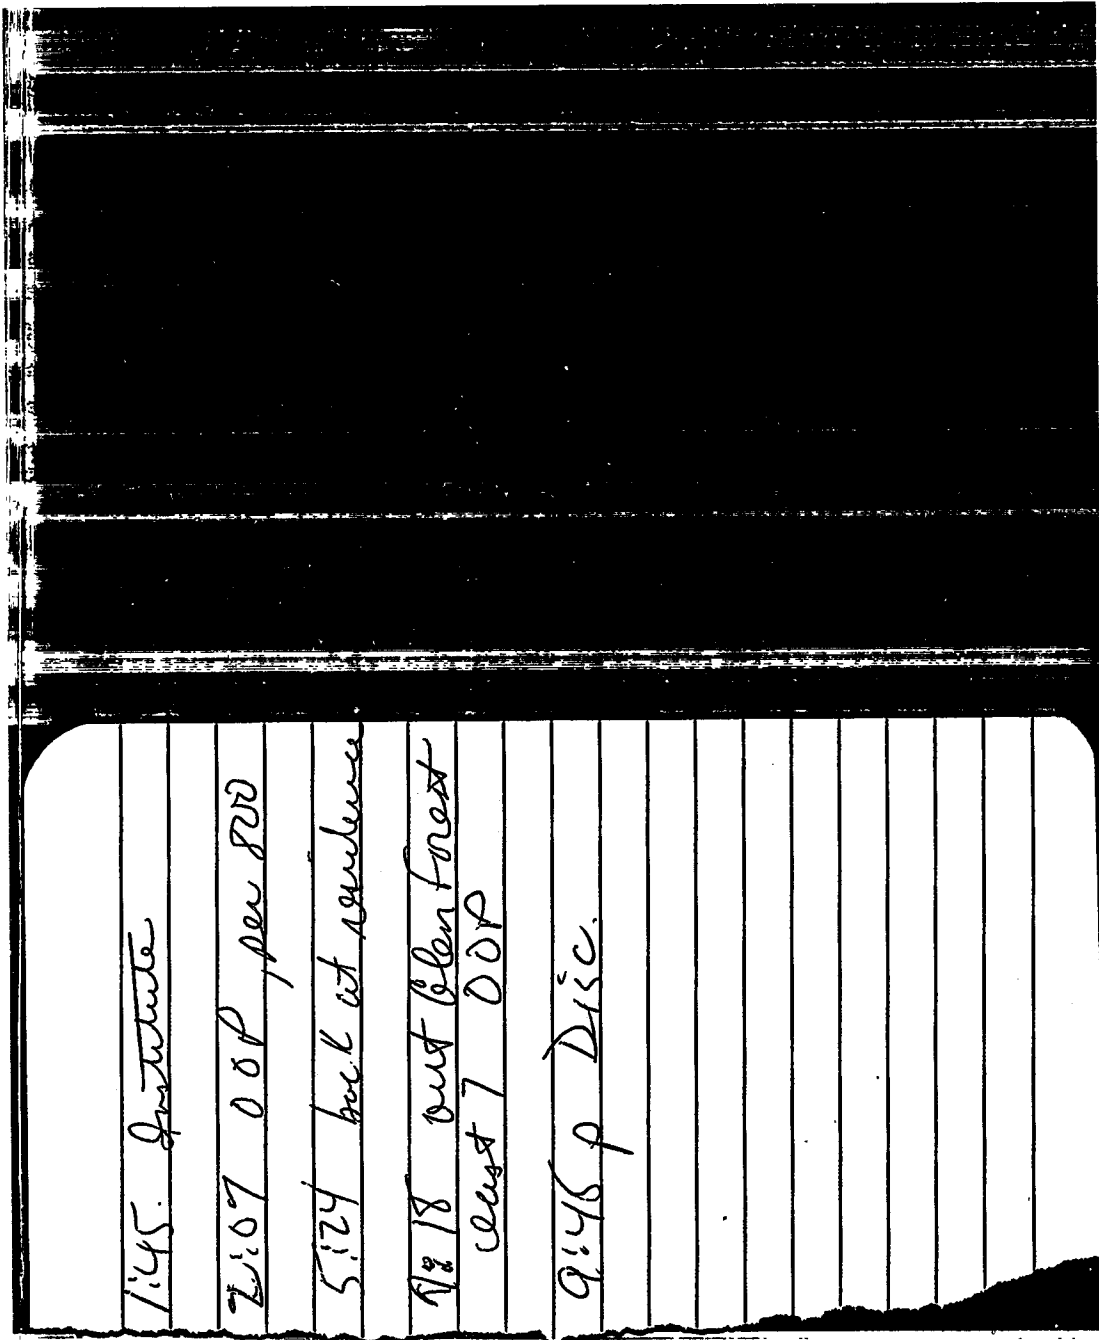 1:45. Institute
2:07 OOP, per 800
5:24 back at residence
18 out Glen Forest
east 7 OOP
9:45 p Disc.